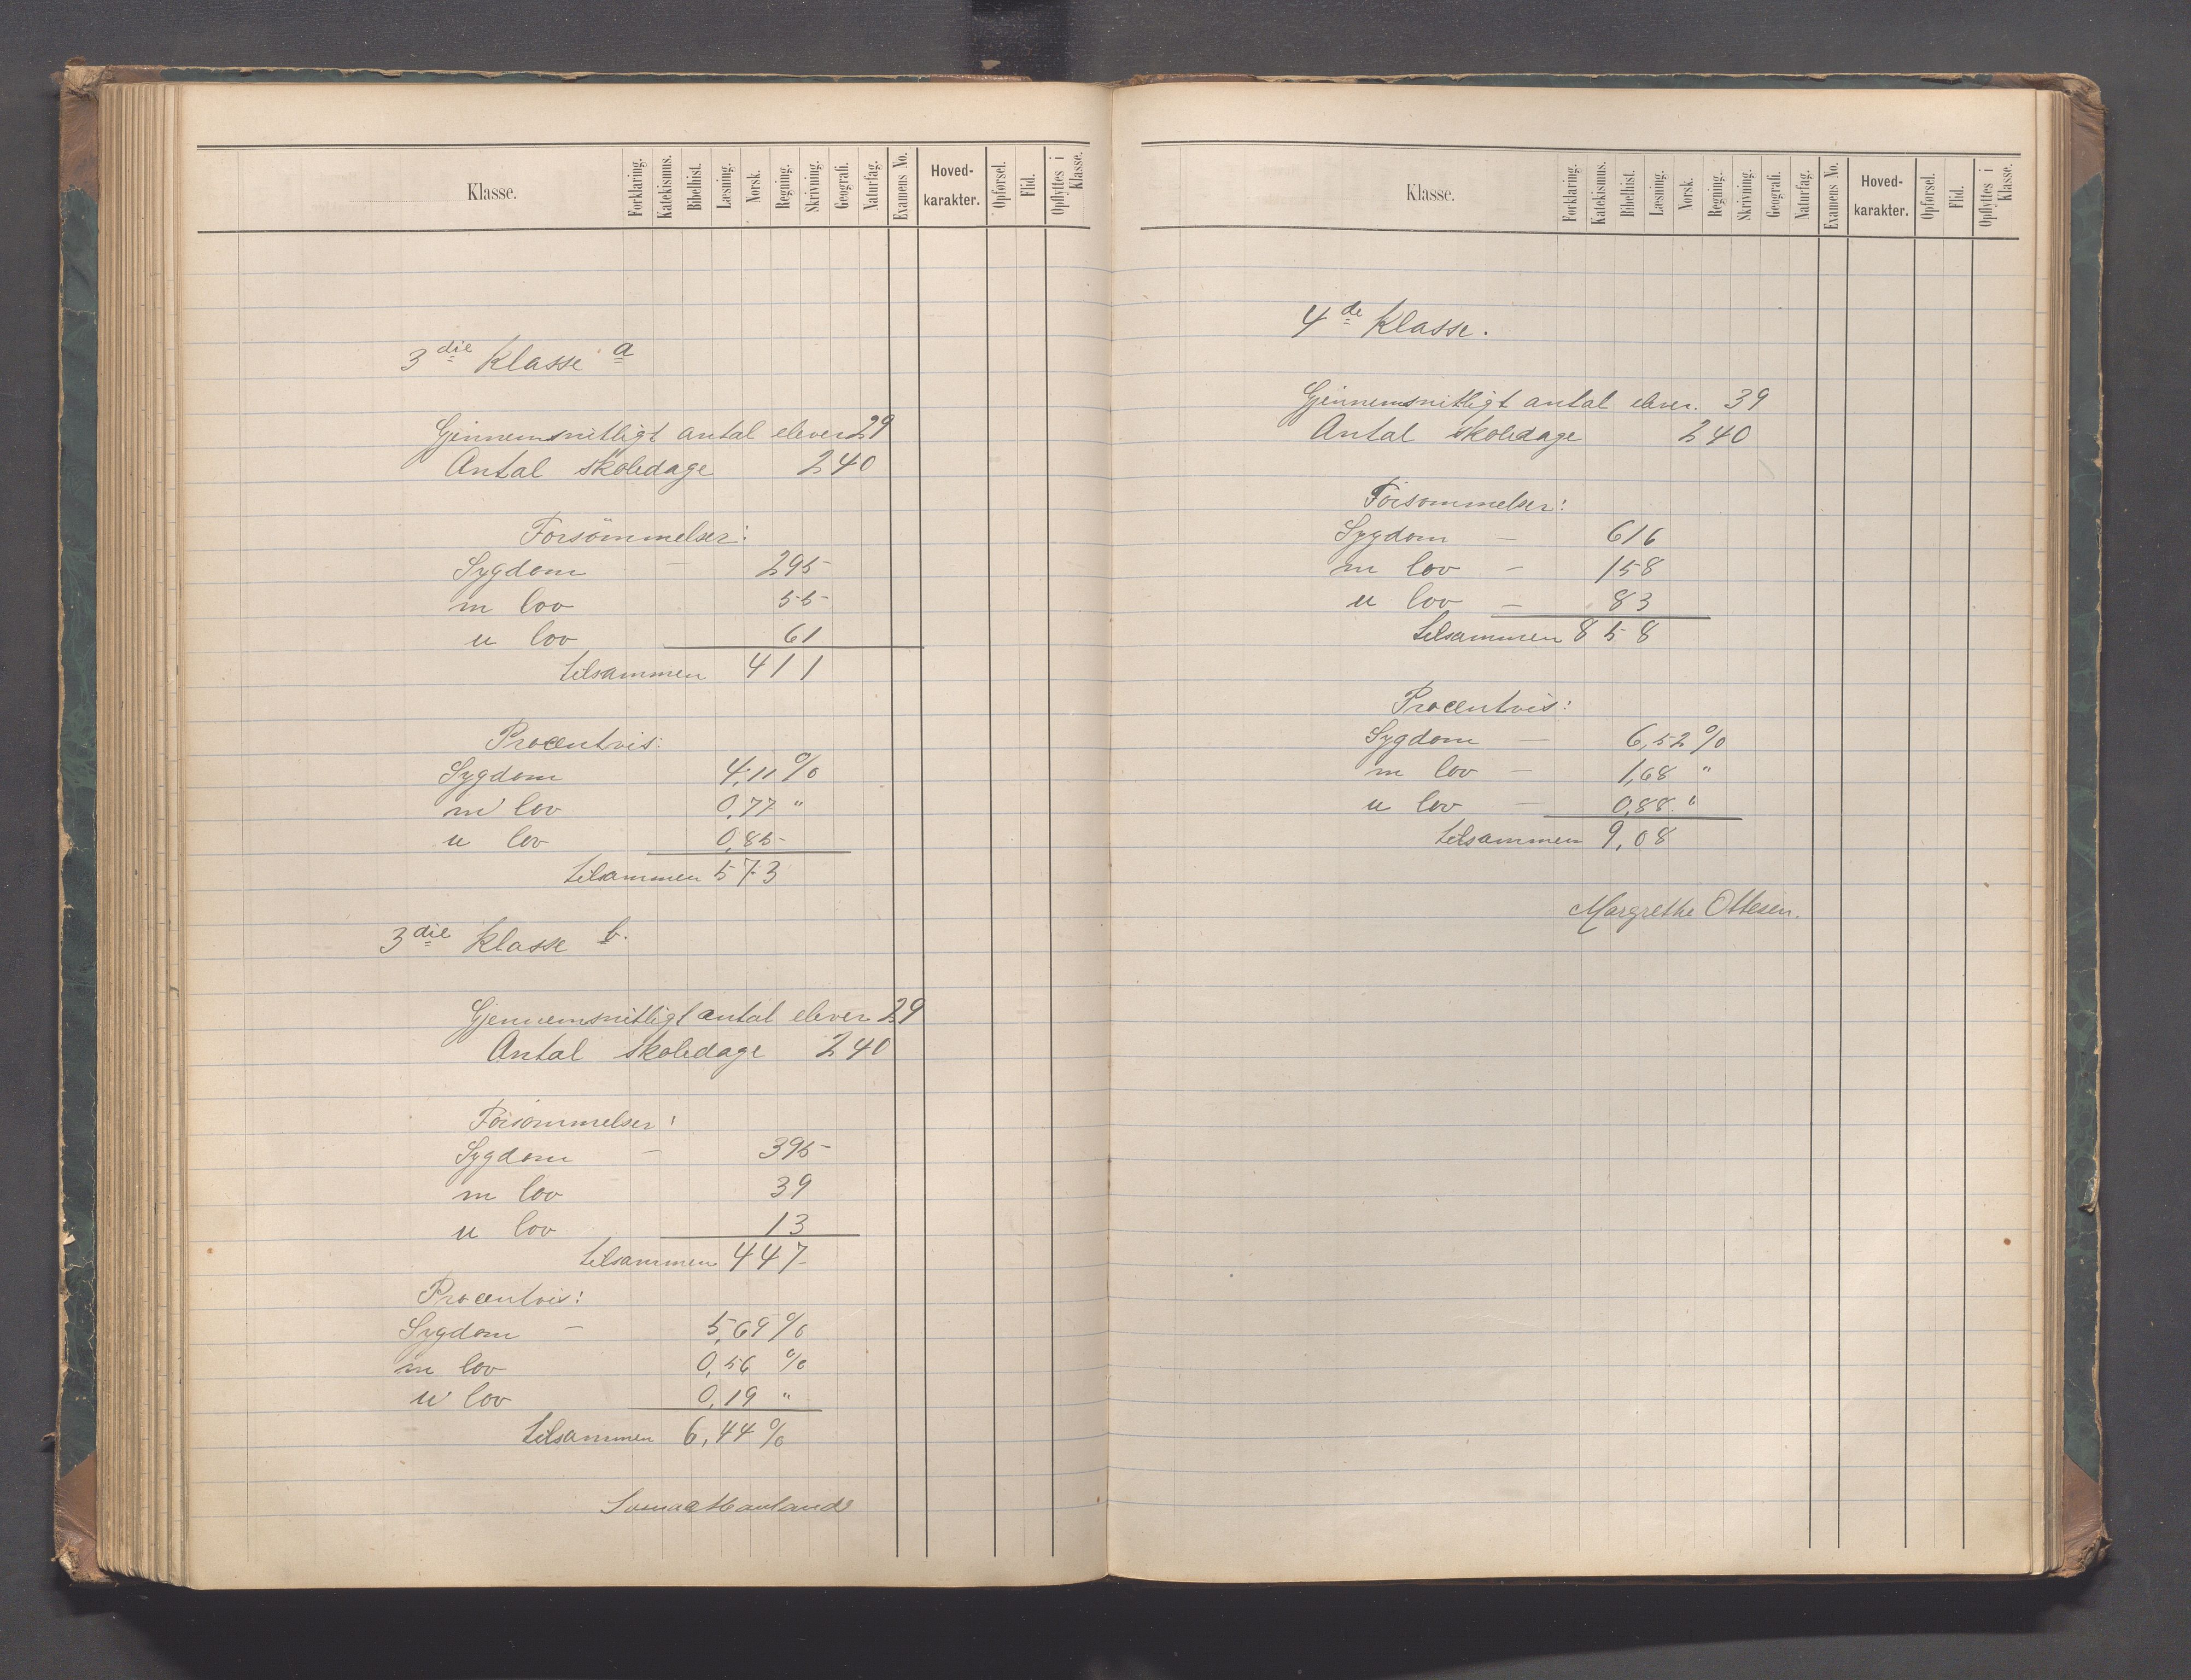 Klasse. Forklaring. Katekismus. Bibelhist. Læsning. Norsk. Regning. Skrivning. Geografi. Naturfag. Examens No. Hoved-karakter. Opførsel. Flid. Opflyttes i Klasse.
3die Klasse a
Gjennemsnitligt antal elever 29
Antal skoledage 240
Forsömmelser:
Sygdom - 295
m lov 55
u lov 61
tilsammen 411
Procentvis:
Sygdom 4,11 %
m lov 0,77 "
u lov 0,85
tilsammen 573
3die Klasse b.
Gjennemsnitligt antal elever 29
Antal skoledage 240
Forsømmelser:
Sygdom - 395
m lov 39
u lov 13
tilsammen 447
Procentvis:
Sygdom - 5,69 %
m lov 0,56 %
u lov 0,19 "
tilsammen 6,44 %
Klasse. Forklaring. Katekismus. Bibelhist. Læsning. Norsk. Regning. Skrivning. Geografi. Naturfag. Examens No. Hoved-karakter. Opførsel. Flid. Opflyttes i Klasse.
4de Klasse.
Gjennemsnitligt antal elever. 39
Antal skoledage 240
Forsømmelser:
Sygdom - 616
m lov - 158
u lov - 83
tilsammen 858
Procentvis:
Sygdom - 6,52 %
m lov - 1,68 "
u lov - 0,88 "
tilsammen 9,08
Margrethe Ottesen.